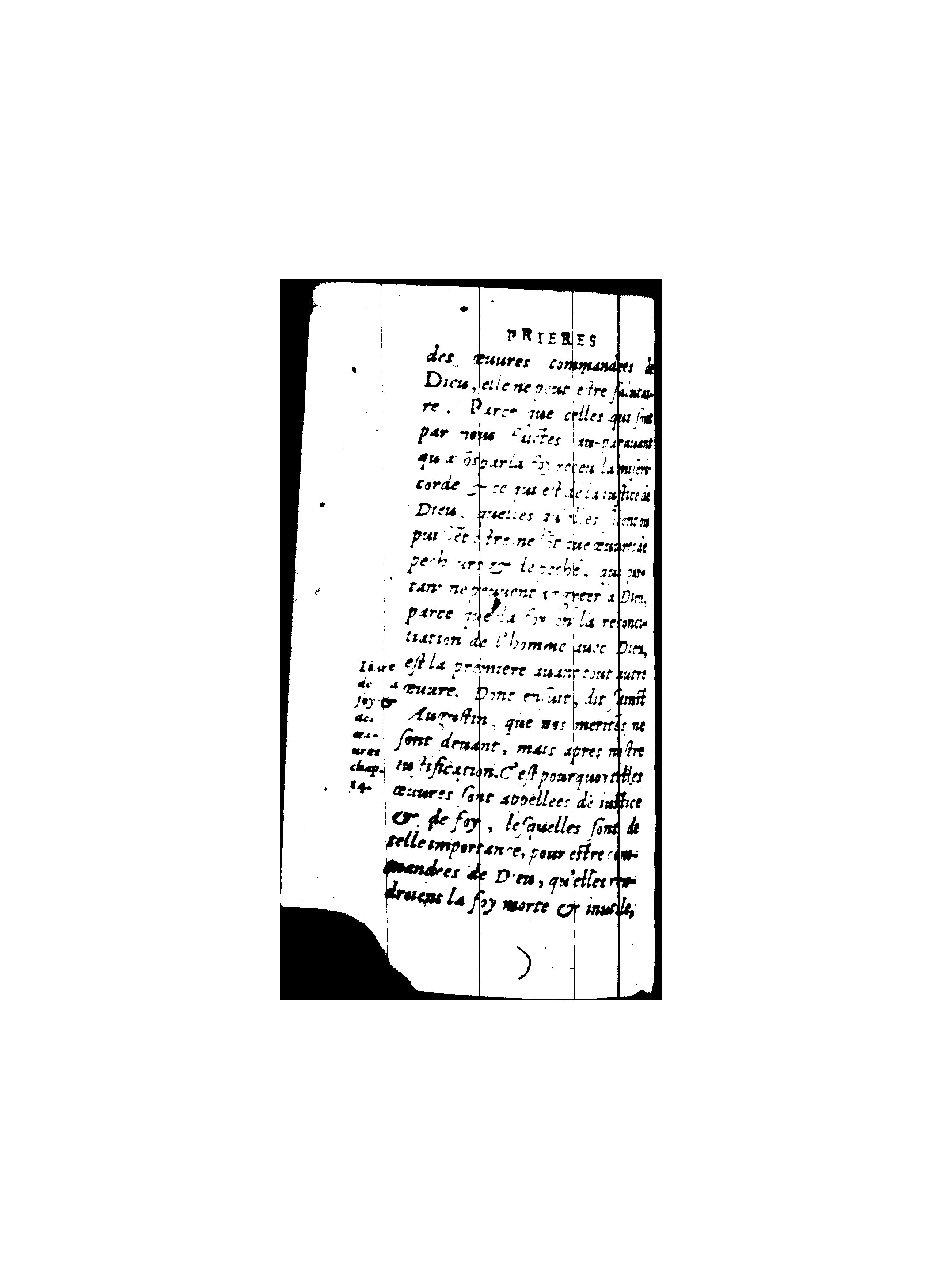 PRIERES
des œuures commandees de
Dieu, elle ne peut estre salutai-
re. Parce que celles qui sont
par nous faictes au-parauant
par la foy receu la miseri-
corde & ce qui est de la iustice de
Dieu, quelles qu'elles
œuures de
pecheurs & de peché,
tant ne peuuent agreer à Dieu,
parce que la foy en la reconci-
liation de l'homme auec Dieu,
est la premiere auant tout autre
œuure. Donc ensuit, dit sainct
Augustin, que nos merites ne
sont deuant, mais apres nostre
iustification. C'est pourquoy telles
œuures sont appellees de iustice
& de foy, lesquelles sont de
telle importance, pour estre com-
mandees de Dieu, qu'elles ren-
droient la foy morte & inutile,
Liure
de la
foy &
des
œu-
ures
chap.
14.